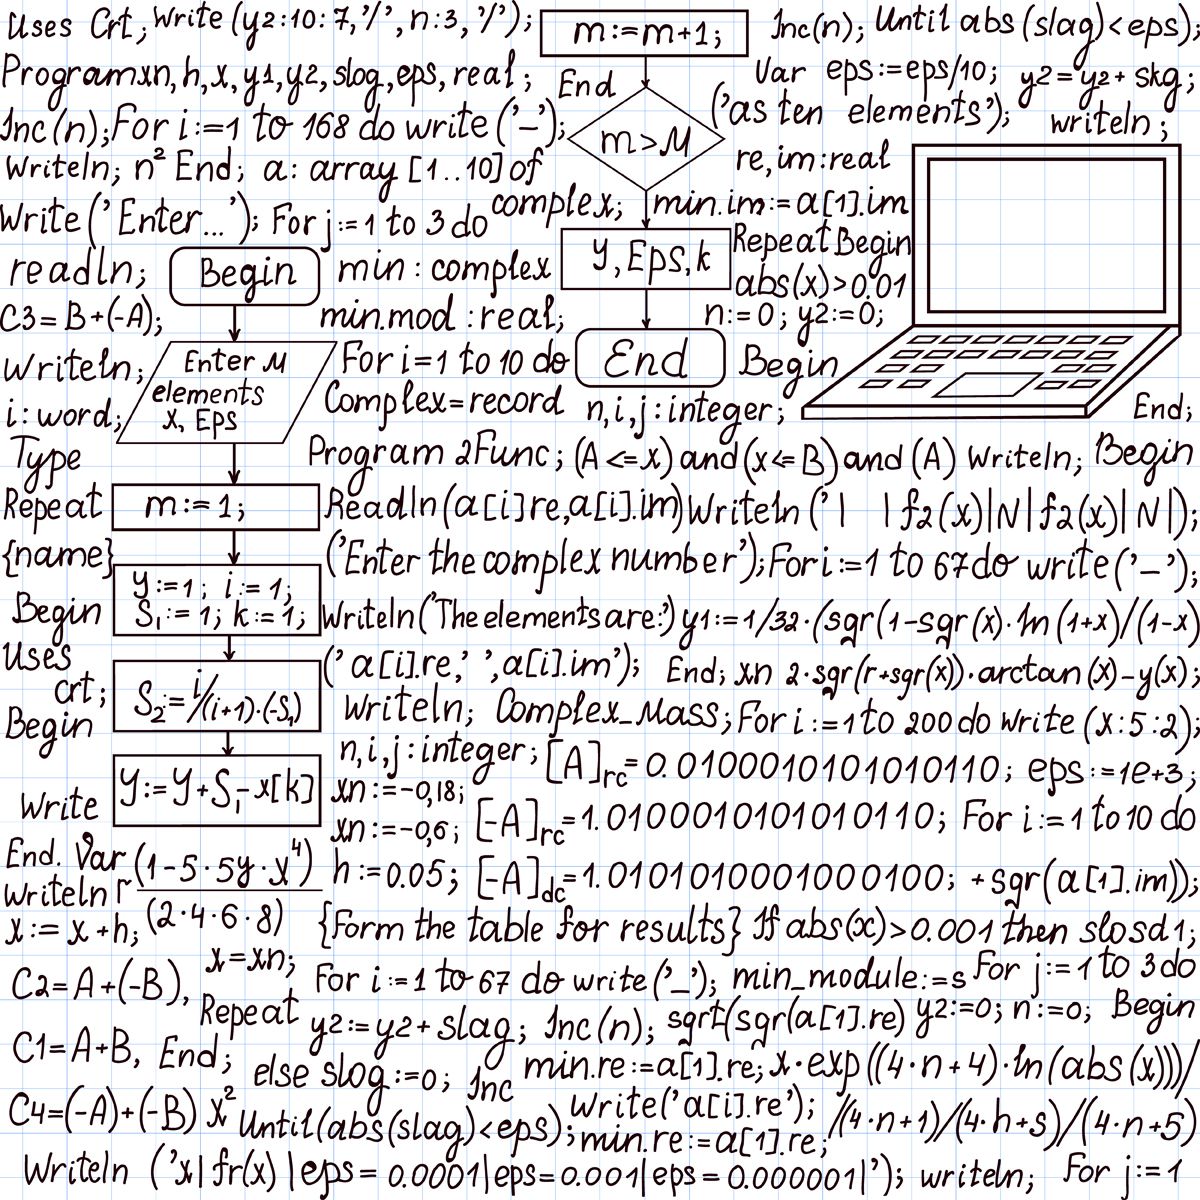 Uses Crt; Write (y2:10:7,'/', n:3, '/'); m:=m+1; Inc(n); Until abs (slag)<eps);
Programxn, h, x, y1, y2, slog, eps, real; End Var eps:=eps/10; y2=y2+ skg;
Inc (n); For i:=1 to 168 do write ('-'); m>M ('as ten elements'); writeln;
Writeln; n² End; a: array [1..10] of re, im:real
Write ('Enter...'); For j:=1 to 3 do complex; min.im:=a[1].im
readln; Begin min: complex y, Eps, k Repeat Begin
abs(x)>0.01
C3=B+(-A); min.mod :real; n:=0; y2:=0;
Writeln; Enter M For i=1 to 10 do End Begin
elements
i: word; x, Eps Complex=record n, i, j: integer; End;
Type Program 2Func; (A <=x) and (x<=B) and (A) Writeln; Begin
Repeat m:=1; Readln (a[i]re,a[i].im) Writeln ('| | f2(x)|N|f2(x)|N|);
{name} ('Enter the complex number'); For i:=1 to 67do write ('-');
y:=1; i:=1;
Begin S₁:=1; k:=1; Writeln('The elements are:') y1:=1/32·(sgr(1-sgr(x)·ln(1+x)/(1-x)
Uses ('a[i].re,' ',a[i].im'); End; xn 2·sgr(r+sgr(x))·arctan(x)-y(x);
crt; S₂:=i/(i+1)·(-S₁) Writeln; Complex_Mass; For i:=1 to 200 do write (x:5:2);
Begin
n, i, j: integer; [A]rc=0.0100010101010110; eps:=1e+3;
y:=y+S₁-x[k] xn:=-0,18;
Write xn:=-0,6; [-A]rc=1.0100010101010110; For i:=1 to 10 do
End. Var (1-5·5y·x⁴) h:=0.05; [-A]dc=1.0101010001000100; +sgr(a[1].im));
Writeln r
x:=x+h; (2·4·6·8) {Form the table for results} If abs(x)>0.001 then slosd1;
C2=A+(-B), x=xn; For i:=1 to 67 do write('_'); min_module:=s For j:=1 to 3do
Repeat y2:=y2+slag; Inc(n); sqrt(sgr(a[1].re) y2:=0; n:=0; Begin
C1=A+B, End; else slog:=0; Inc min.re:=a[1].re; x·exp((4·n+4)·ln(abs(x)))/
C4=(-A)+(-B) x² Until(abs(slag)<eps); Write('a[i].re'); /(4·n+1)/(4·h+s)/(4·n+5)
min.re:=a[1].re;
Writeln ('x| fr(x) |eps= 0.0001|eps=0.001|eps=0.000001|'); writeln; For j:=1